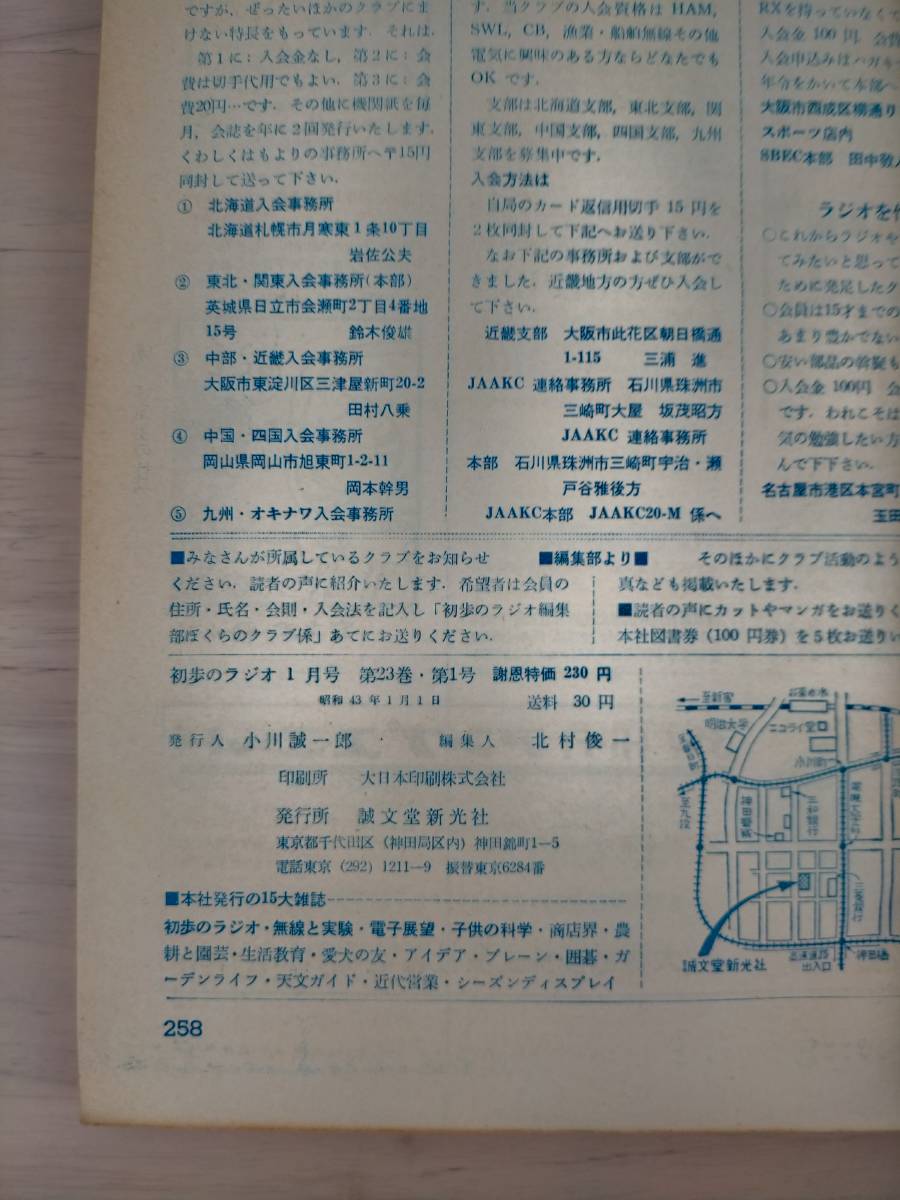 ですが，ぜったいほかのクラブにま
けない特長をもっています．それは，
第1に：入会金なし，第2に：会
費は切手代用でもよい．第3に：会
費20円…です．その他に機関誌を毎
月，会誌を年に2回発行いたします．
くわしくはもよりの事務所へ〒15円
同封して送って下さい．
① 北海道入会事務所
北海道札幌市月寒東1条10丁目
岩佐公夫
② 東北・関東入会事務所(本部)
茨城県日立市会瀬町2丁目4番地
15号 鈴木俊雄
③ 中部・近畿入会事務所
大阪市東淀川区三津屋新町20-2
田村八乗
④ 中国・四国入会事務所
岡山県岡山市旭東町1-2-11
岡本幹男
⑤ 九州・オキナワ入会事務所
す．当クラブの入会資格は HAM,
SWL, CB, 漁業・船舶無線その他
電気に興味のある方ならどなたでも
OK です．
支部は北海道支部，東北支部，関
東支部，中国支部，四国支部，九州
支部を募集中です．
入会方法は
自局のカード返信用切手 15 円を
2枚同封して下記へお送り下さい．
なお下記の事務所および支部がで
きました．近畿地方の方ぜひ入会し
て下さい．
近畿支部 大阪市此花区朝日橋通
1-115 三浦 進
JAAKC 連絡事務所 石川県珠洲市
三崎町大屋 坂茂昭方
JAAKC 連絡事務所
本部 石川県珠洲市三崎町宇治・瀬
戸谷雅後方
JAAKC本部 JAAKC20-M 係へ
RXを持っていなくて
入会金 100 円 会費
入会申込みはハガキ
年令をかいて本部へ
大阪市西成区柳通り
スポーツ店内
SBEC本部 田中敦
ラジオを作
○これからラジオや
てみたいと思って
ために発足したク
○会員は15才までの
あまり豊かでない
○安い部品の斡旋も
○入会金 100円 会
です．われこそは
気の勉強したい方
んで下下さい．
名古屋市港区本宮町
玉田
■みなさんが所属しているクラブをお知らせ
ください．読者の声に紹介いたします．希望者は会員の
住所・氏名・会則・入会法を記入し「初歩のラジオ編集
部ぼくらのクラブ係」あてにお送りください．
■編集部より■
そのほかにクラブ活動のよう
真なども掲載いたします．
■読者の声にカットやマンガをお送りく
本社図書券（100 円券）を5枚お送りい
初歩のラジオ 1 月号 第23巻・第1号 謝恩特価 230 円
昭和 43 年 1 月 1 日 送料 30 円
発行人 小川誠一郎 ・ 編集人 北村俊一
印刷所 大日本印刷株式会社
発行所 誠文堂新光社
東京都千代田区（神田局区内）神田錦町1−5
電話東京（292）1211−9 振替東京6284番
■本社発行の15大雑誌
初歩のラジオ・無線と実験・電子展望・子供の科学・商店界・農
耕と園芸・生活教育・愛犬の友・アイデア・ブレーン・囲碁・ガ
ーデンライフ・天文ガイド・近代営業・シーズンディスプレイ
至新宿
お茶の水
明治大学
ニコライ堂
小川町
至九段
神田警察
三和銀行
誠文堂新光社
高速道路
出入口
神田橋
258